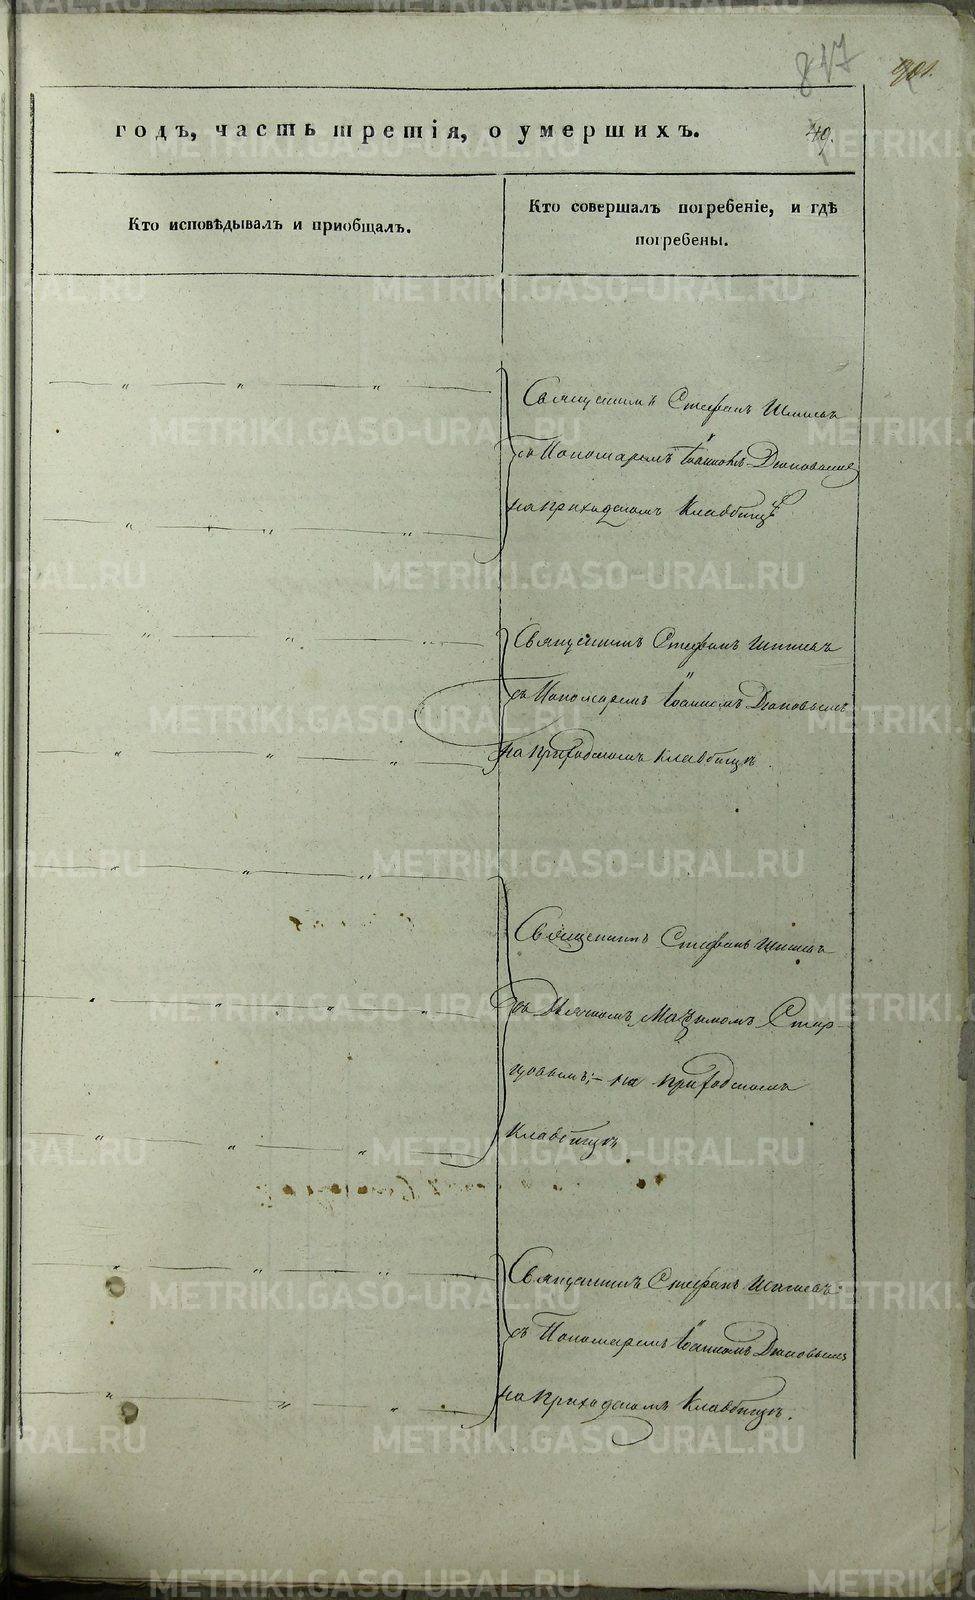 847
901.
годъ, часть третія, о умершихъ.
49.
Кто исповѣдывалъ и приобщалъ.
Кто совершалъ погребеніе, и гдѣ
погребены.
Священникъ Стефанъ
съ Пономаремъ Іоанномъ
на приходскомъ кладбищѣ
Священникъ Стефанъ
съ Пономаремъ Іоанномъ
на приходскомъ кладбищѣ.
Священникъ Стефанъ
съ Дьячкомъ Максимомъ Стар-
цовымъ;- на приходскомъ
кладбищѣ
Священникъ Стефанъ
съ Пономаремъ Іоанномъ
на приходскомъ кладбищѣ.
METRIKI.GASO-URAL.RU